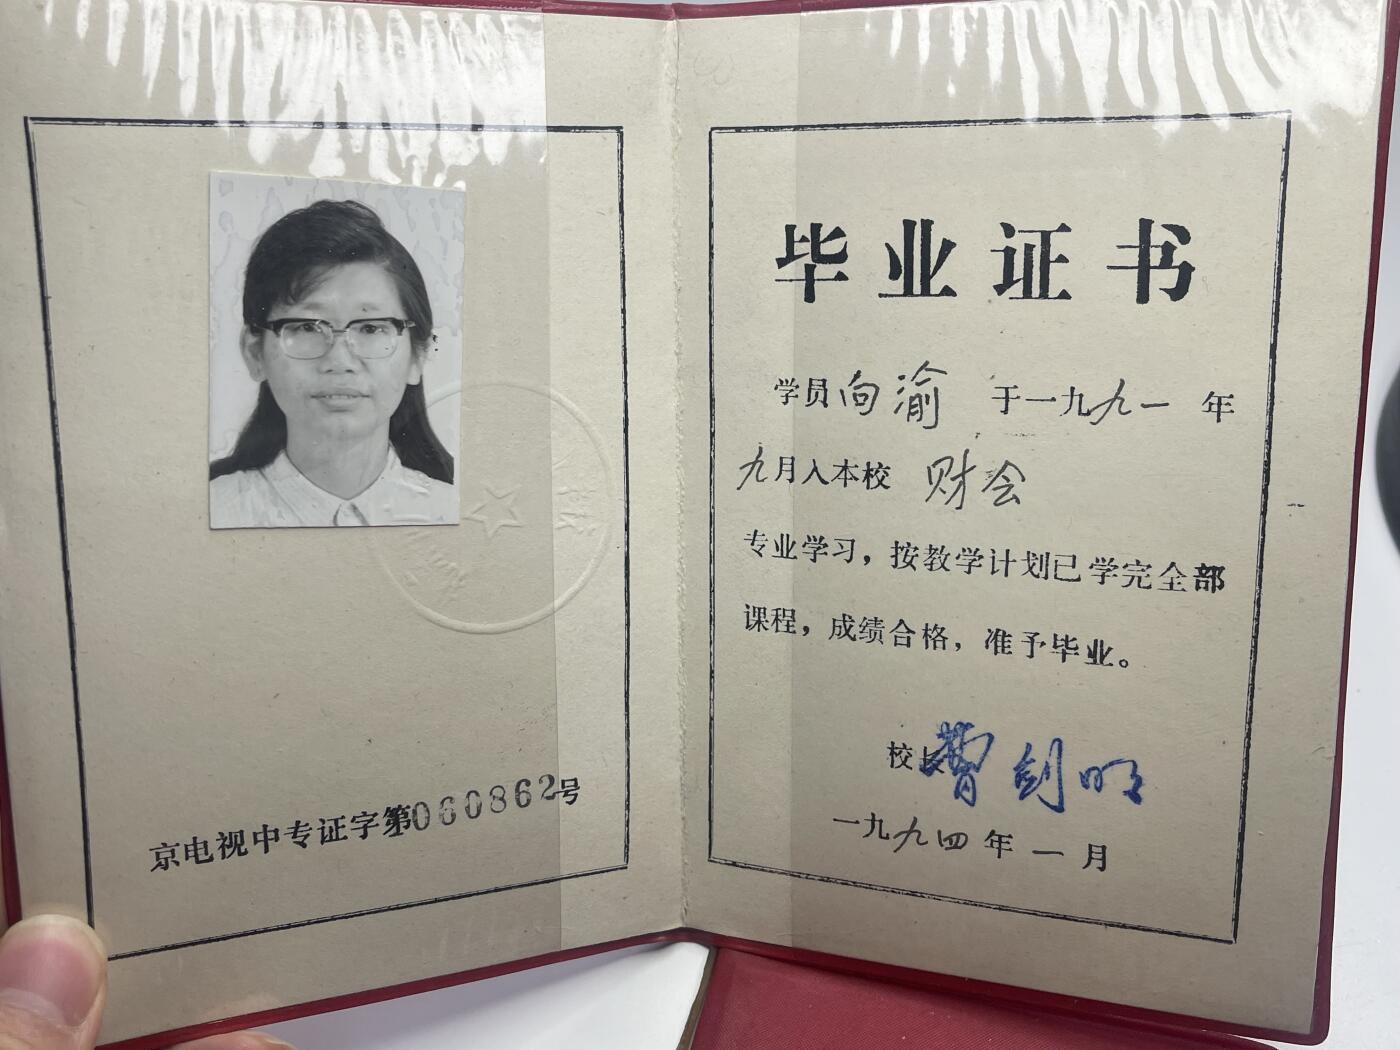 京电视中专证字第060862号
毕业证书
学员向渝 于一九九一年
九月入本校 财会
专业学习，按教学计划已学完全部
课程，成绩合格，准予毕业。
校长曹剑明
一九九四年一月